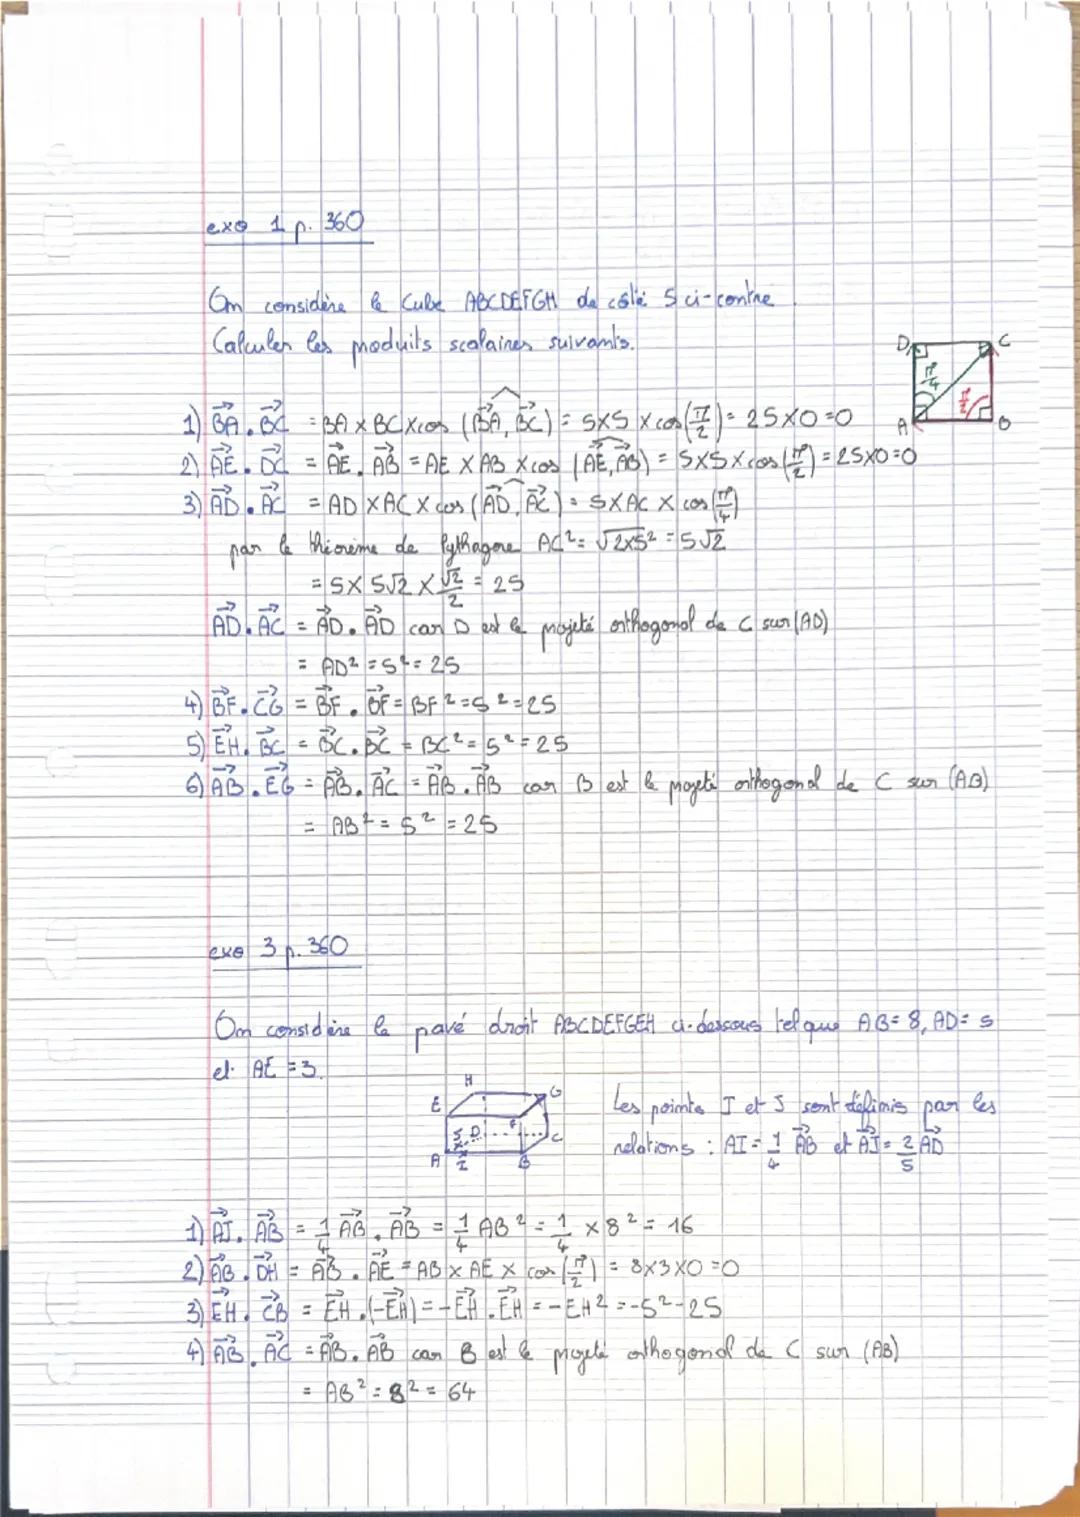 exo 1 p. 360
On considère le cube ABCDEFGH de côté 5 ci-contre.
Calculer les produits scalaires suivants.
D C
π/4 π/2
A B
1) BA⃗ . BC⃗ = BA × BC × cos (BA⃗, BC⃗) = 5×5 × cos(π/2) = 25×0=0
2) AE⃗ . DC⃗ = AE⃗ . AB⃗ = AE × AB × cos (AE⃗, AB⃗) = 5×5×cos(π/2) = 25×0=0
3) AD⃗ . AC⃗ = AD × AC × cos (AD⃗, AC⃗) = 5×AC × cos(π/4)
par le théorème de Pythagore AC² = √2×5² = 5√2
= 5× 5√2 × √2/2 = 25
AD⃗ . AC⃗ = AD⃗ . AD⃗ car D est le projeté orthogonal de C sur (AD)
= AD² = 5² = 25
4) BF⃗ . CG⃗ = BF⃗ . BF⃗ = BF² = 5² = 25
5) EH⃗ . BC⃗ = BC⃗ . BC⃗ = BC² = 5² = 25
6) AB⃗ . EG⃗ = AB⃗ . AC⃗ = AB⃗ . AB⃗ car B est le projeté orthogonal de C sur (AB)
= AB² = 5² = 25
exo 3 p. 360
On considère le pavé droit ABCDEFGEH ci-dessous tel que AB= 8, AD= 5
et AE = 3.
H
E G
J D F C
A I B
Les points I et J sont définis par les
relations : AI = 1/4 AB⃗ et AJ⃗ = 2/5 AD⃗
1) AI⃗ . AB⃗ = 1/4 AB⃗ . AB⃗ = 1/4 AB² = 1/4 × 8² = 16
2) AB⃗ . DH⃗ = AB⃗ . AE⃗ = AB × AE × cos(π/2) = 8×3×0 =0
3) EH⃗ . CB⃗ = EH⃗ . (-EH⃗) = - EH⃗ . EH⃗ = - EH² = -5² -25
4) AB⃗ . AC⃗ = AB⃗ . AB⃗ car B est le projeté orthogonal de C sur (AB)
= AB² = 8² = 64